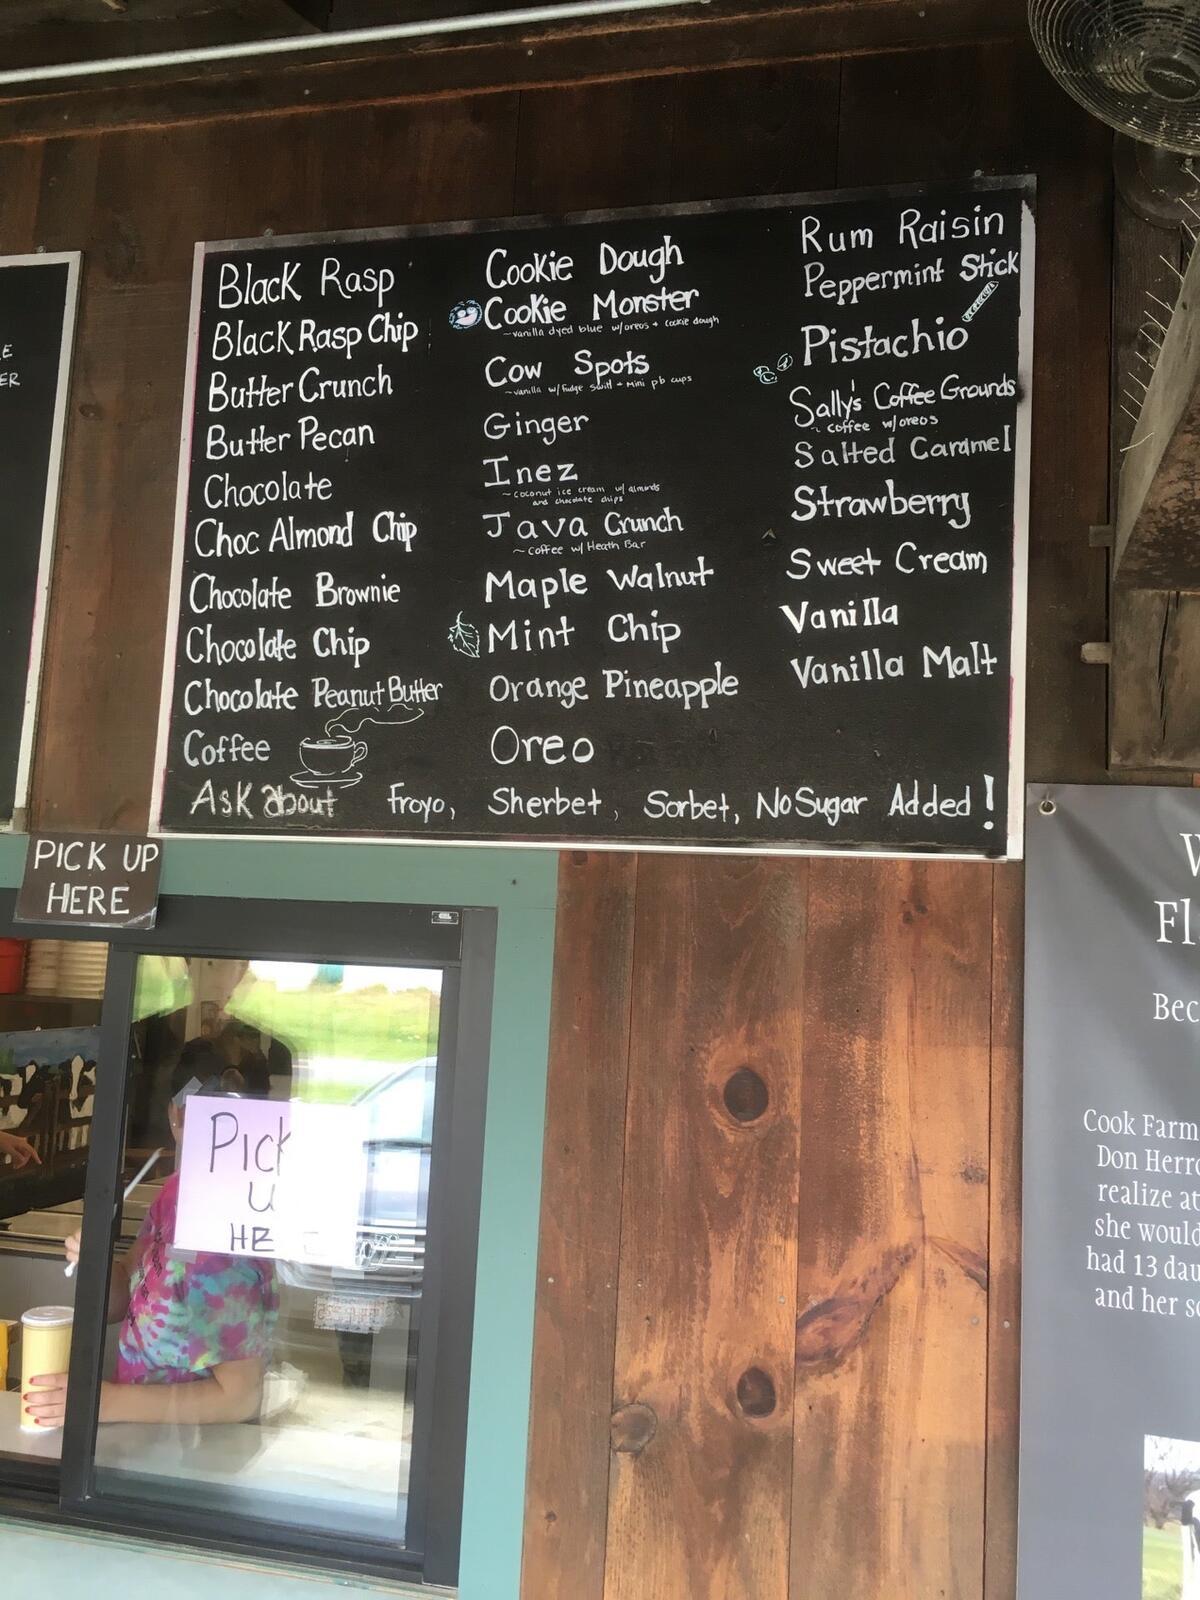 E
ER
Black Rasp
Black Rasp Chip
Butter Crunch
Butter Pecan
Chocolate
Choc Almond Chip
Chocolate Brownie
Chocolate Chip
Chocolate Peanut Butter
Coffee
Cookie Dough
Cookie Monster
~vanilla dyed blue w/oreos + cookie dough
Cow Spots
~vanilla w/ fudge swirl + mini pb cups
Ginger
Inez
~coconut ice cream w/ almonds
and chocolate chips
Java Crunch
~coffee w/ Heath Bar
Maple Walnut
Mint Chip
Orange Pineapple
Oreo
Rum Raisin
Peppermint Stick
Pistachio
Sally's Coffee Grounds
~coffee w/oreos
Salted Caramel
Strawberry
Sweet Cream
Vanilla
Vanilla Malt
Ask about Froyo, Sherbet, Sorbet, No Sugar Added!
PICK UP
HERE
Pick
U
HE E
Fl
Bec
Cook Farm
Don Herr
realize at
she would
had 13 dau
and her s